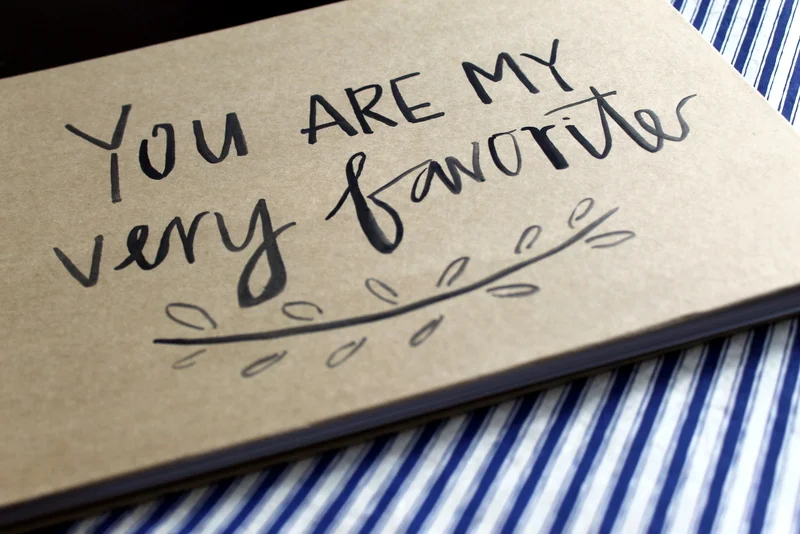 YOU ARE MY
very favorite